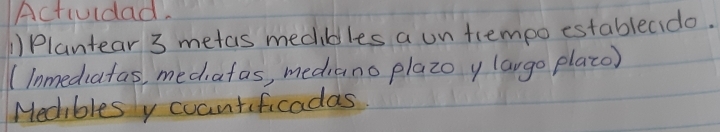 Actividad.
1) Plantear 3 metas medibles a un tiempo establecido.
(Inmediatas, mediatas, mediano plazo y largo plazo)
Medibles y cuantificadas.